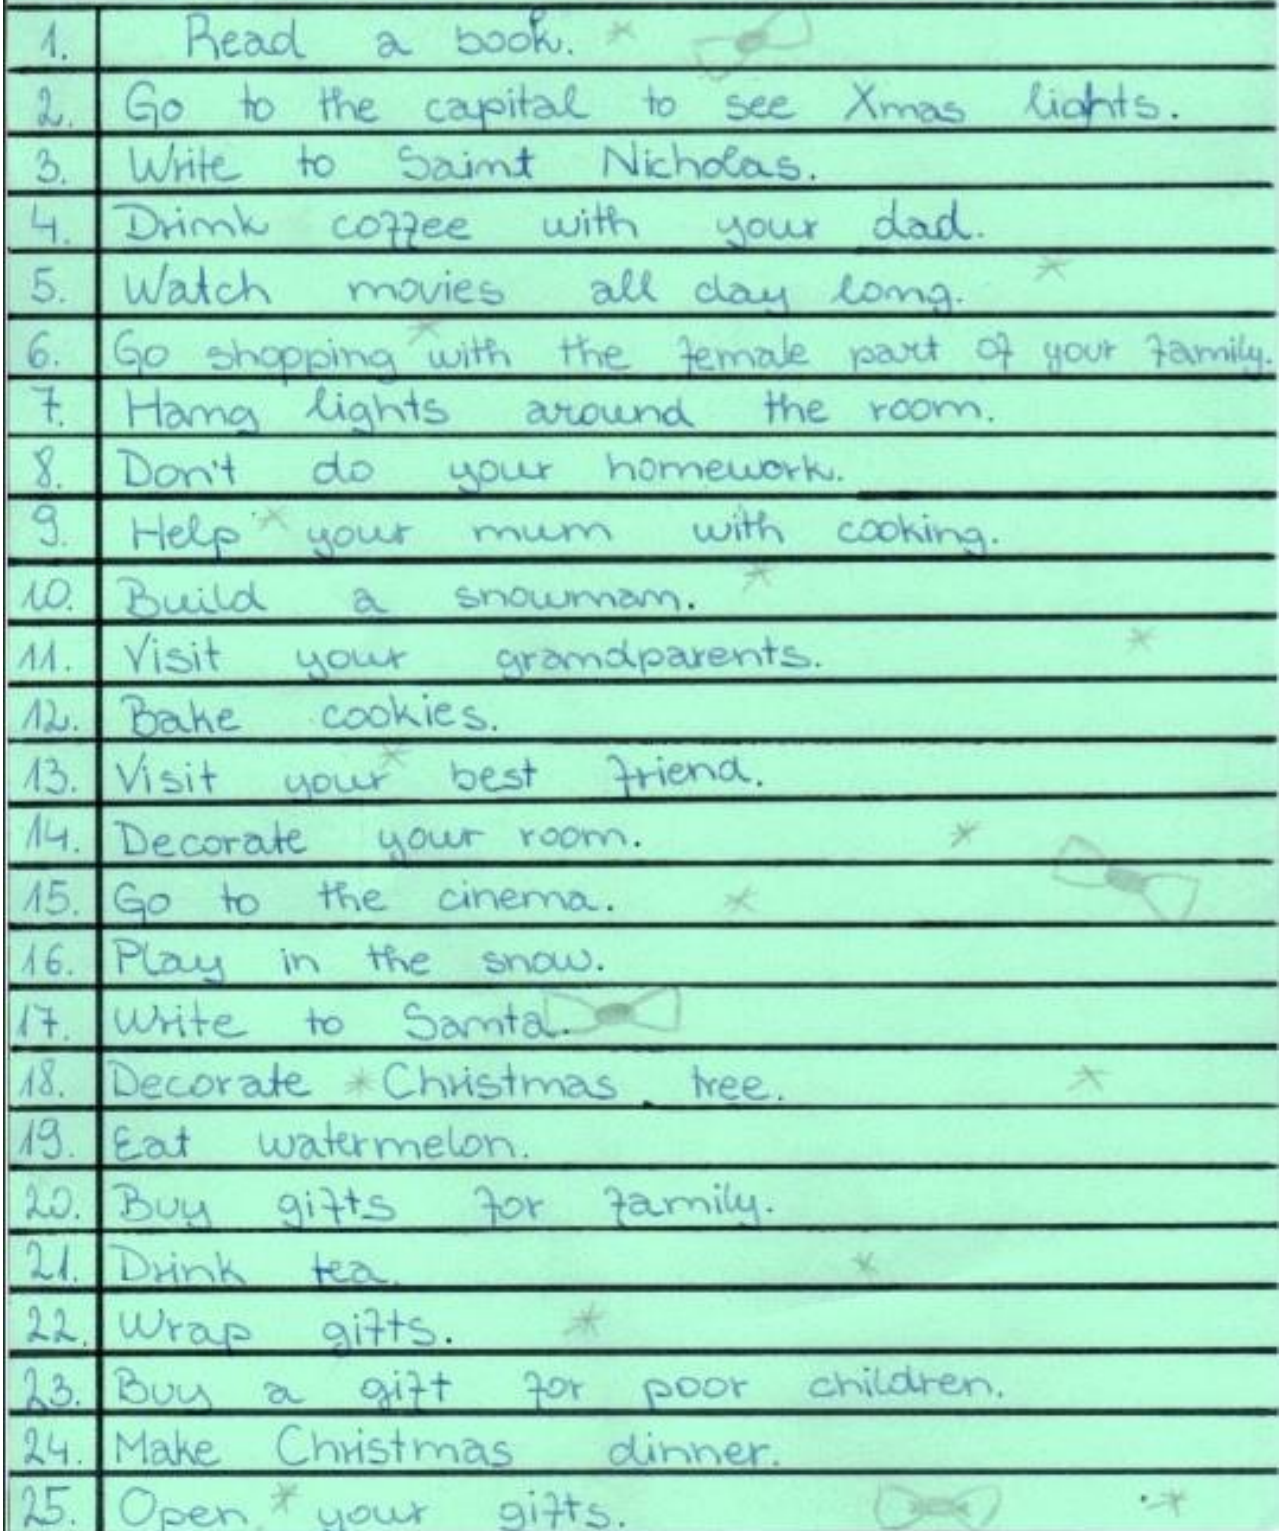 1. Read a book.
2. Go to the capital to see Xmas lights.
3. Write to Saint Nicholas.
4. Drink coffee with your dad.
5. Watch movies all day long.
6. Go shopping with the female part of your family.
7. Hang lights around the room.
8. Don't do your homework.
9. Help your mum with cooking.
10. Build a snowman.
11. Visit your grandparents.
12. Bake cookies.
13. Visit your best friend.
14. Decorate your room.
15. Go to the cinema.
16. Play in the snow.
17. Write to Santa.
18. Decorate Christmas tree.
19. Eat watermelon.
20. Buy gifts for family.
21. Drink tea.
22. Wrap gifts.
23. Buy a gift for poor children.
24. Make Christmas dinner.
25. Open your gifts.